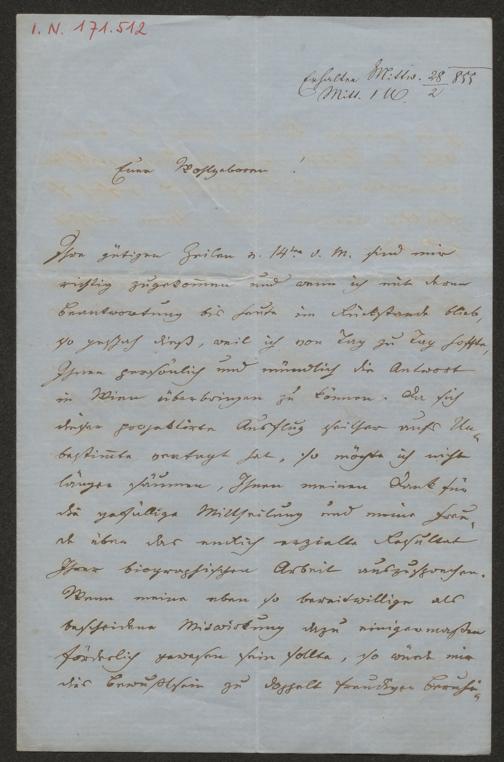 I. N. 171.512
Erhalten Mittw. 28/2 855
Mitt. 1 U.
Euer Wohlgeboren!
Ihre gütigen Zeilen v. 14ten d. M. sind mir
richtig zugekommen und wenn ich mit deren
Beantwortung bis heute im Rückstande blieb,
so geschah dieß, weil ich von Tag zu Tag hoffte,
Ihnen persönlich und mündlich die Antwort
in Wien überbringen zu können. Da sich
dieser projektirte Ausflug seither aufs Un-
bestimmte vertagt hat, so möchte ich nicht
länger säumen, Ihnen meinen Dank für
die gefällige Mittheilung und meine Freu-
de über das endlich erzielte Resultat
Ihrer biographischen Arbeit auszusprechen.
Wenn meine eben so bereitwillige als
bescheidene Mitwirkung dazu einigermaßen
förderlich gewesen sein sollte, so würde mir
das Bewußtsein zu doppelt freudiger Beruhi-